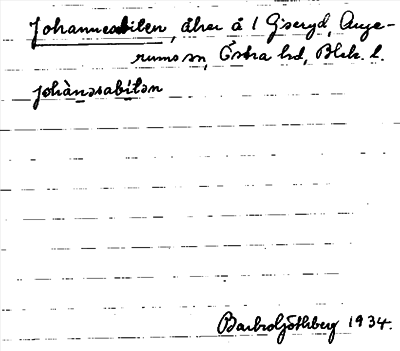 Johannesabiten, åker å 1 Giseryd, Auge-
rums sn, Östra hd, Blek. l.
johànəsabìtən
Barbro Göthberg 1934.